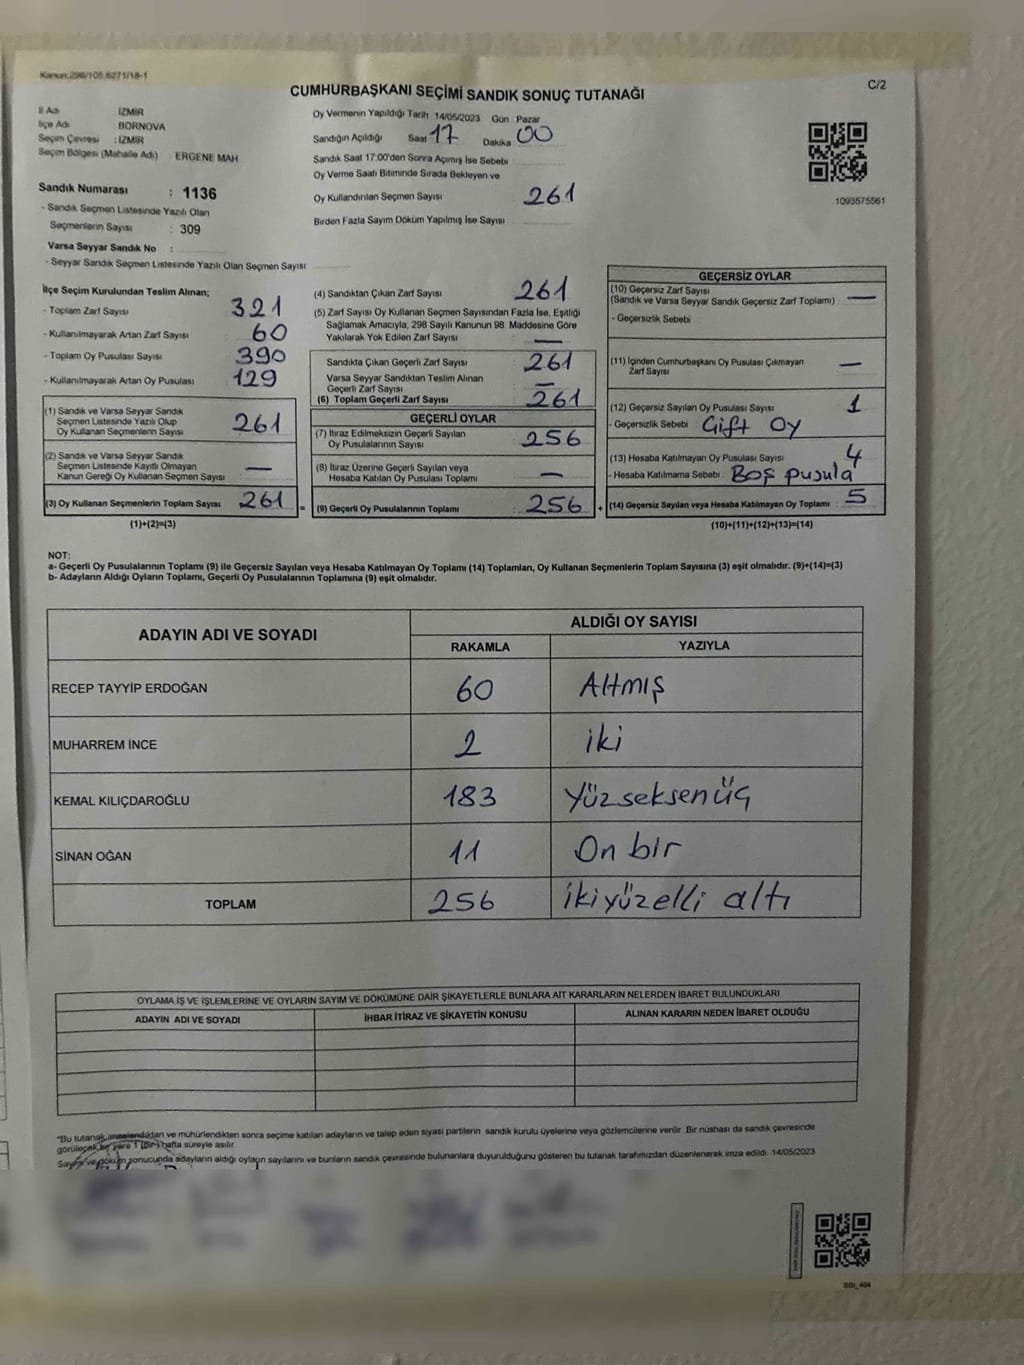 Kanun.298/105.6271/18-1
C/2
CUMHURBAŞKANI SEÇİMİ SANDIK SONUÇ TUTANAĞI
İl Adı İZMİR
İlçe Adı BORNOVA
Seçim Çevresi : İZMİR
Seçim Bölgesi (Mahalle Adı) ERGENE MAH
Sandık Numarası : 1136
- Sandık Seçmen Listesinde Yazılı Olan
Seçmenlerin Sayısı : 309
Varsa Seyyar Sandık No :
- Seyyar Sandık Seçmen Listesinde Yazılı Olan Seçmen Sayısı
Oy Vermenin Yapıldığı Tarih 14/05/2023 Gün Pazar
Sandığın Açıldığı Saat 17 Dakika 00
Sandık Saat 17:00'den Sonra Açımış İse Sebebi
Oy Verme Saati Bitiminde Sırada Bekleyen ve
Oy Kullandırılan Seçmen Sayısı 261
Birden Fazla Sayım Döküm Yapılmış İse Sayısı
1093575561
İlçe Seçim Kurulundan Teslim Alınan;
- Toplam Zarf Sayısı 321
- Kullanılmayarak Artan Zarf Sayısı 60
- Toplam Oy Pusulası Sayısı 390
- Kullanılmayarak Artan Oy Pusulası 129
(1) Sandık ve Varsa Seyyar Sandık
Seçmen Listesinde Yazılı Olup
Oy Kullanan Seçmenlerin Sayısı 261
(2) Sandık ve Varsa Seyyar Sandık
Seçmen Listesinde Kayıtlı Olmayan
Kanun Gereği Oy Kullanan Seçmen Sayısı —
(3) Oy Kullanan Seçmenlerin Toplam Sayısı 261 =
(1)+(2)=(3)
(4) Sandıktan Çıkan Zarf Sayısı 261
(5) Zarf Sayısı Oy Kullanan Seçmen Sayısından Fazla İse, Eşitliği
Sağlamak Amacıyla, 298 Sayılı Kanunun 98. Maddesine Göre
Yakılarak Yok Edilen Zarf Sayısı —
Sandıkta Çıkan Geçerli Zarf Sayısı 261
Varsa Seyyar Sandıktan Teslim Alınan
Geçerli Zarf Sayısı —
(6) Toplam Geçerli Zarf Sayısı 261
GEÇERLİ OYLAR
(7) İtiraz Edilmeksizin Geçerli Sayılan
Oy Pusulalarının Sayısı 256
(8) İtiraz Üzerine Geçerli Sayılan veya
Hesaba Katılan Oy Pusulası Toplamı —
(9) Geçerli Oy Pusulalarının Toplamı 256 +
GEÇERSİZ OYLAR
(10) Geçersiz Zarf Sayısı
(Sandık ve Varsa Seyyar Sandık Geçersiz Zarf Toplamı) —
- Geçersizlik Sebebi
(11) İçinden Cumhurbaşkanı Oy Pusulası Çıkmayan
Zarf Sayısı —
(12) Geçersiz Sayılan Oy Pusulası Sayısı 1
- Geçersizlik Sebebi Çift Oy
(13) Hesaba Katılmayan Oy Pusulası Sayısı 4
- Hesaba Katılmama Sebebi : Boş pusula
(14) Geçersiz Sayılan veya Hesaba Katılmayan Oy Toplamı : 5
(10)+(11)+(12)+(13)=(14)
NOT:
a- Geçerli Oy Pusulalarının Toplamı (9) ile Geçersiz Sayılan veya Hesaba Katılmayan Oy Toplamı (14) Toplamları, Oy Kullanan Seçmenlerin Toplam Sayısına (3) eşit olmalıdır. (9)+(14)=(3)
b- Adayların Aldığı Oyların Toplamı, Geçerli Oy Pusulalarının Toplamına (9) eşit olmalıdır.
ADAYIN ADI VE SOYADI
ALDIĞI OY SAYISI
RAKAMLA YAZIYLA
RECEP TAYYİP ERDOĞAN 60 Altmış
MUHARREM İNCE 2 iki
KEMAL KILIÇDAROĞLU 183 Yüzseksenüç
SİNAN OĞAN 11 On bir
TOPLAM 256 ikiyüzelli altı
OYLAMA İŞ VE İŞLEMLERİNE VE OYLARIN SAYIM VE DÖKÜMÜNE DAİR ŞİKAYETLERLE BUNLARA AİT KARARLARIN NELERDEN İBARET BULUNDUKLARI
ADAYIN ADI VE SOYADI İHBAR İTİRAZ VE ŞİKAYETİN KONUSU ALINAN KARARIN NEDEN İBARET OLDUĞU
*Bu tutanak imzalandıktan ve mühürlendikten sonra seçime katılan adayların ve talep eden siyasi partilerin sandık kurulu üyelerine veya gözlemcilerine verilir. Bir nüshası da sandık çevresinde
görülecek bir yere 1 (Bir) hafta süreyle asılır.
Sayım ve döküm sonucunda adayların aldığı oyların sayılarını ve bunların sandık çevresinde bulunanlara duyurulduğunu gösteren bu tutanak tarafımızdan düzenlenerek imza edildi. 14/05/2023